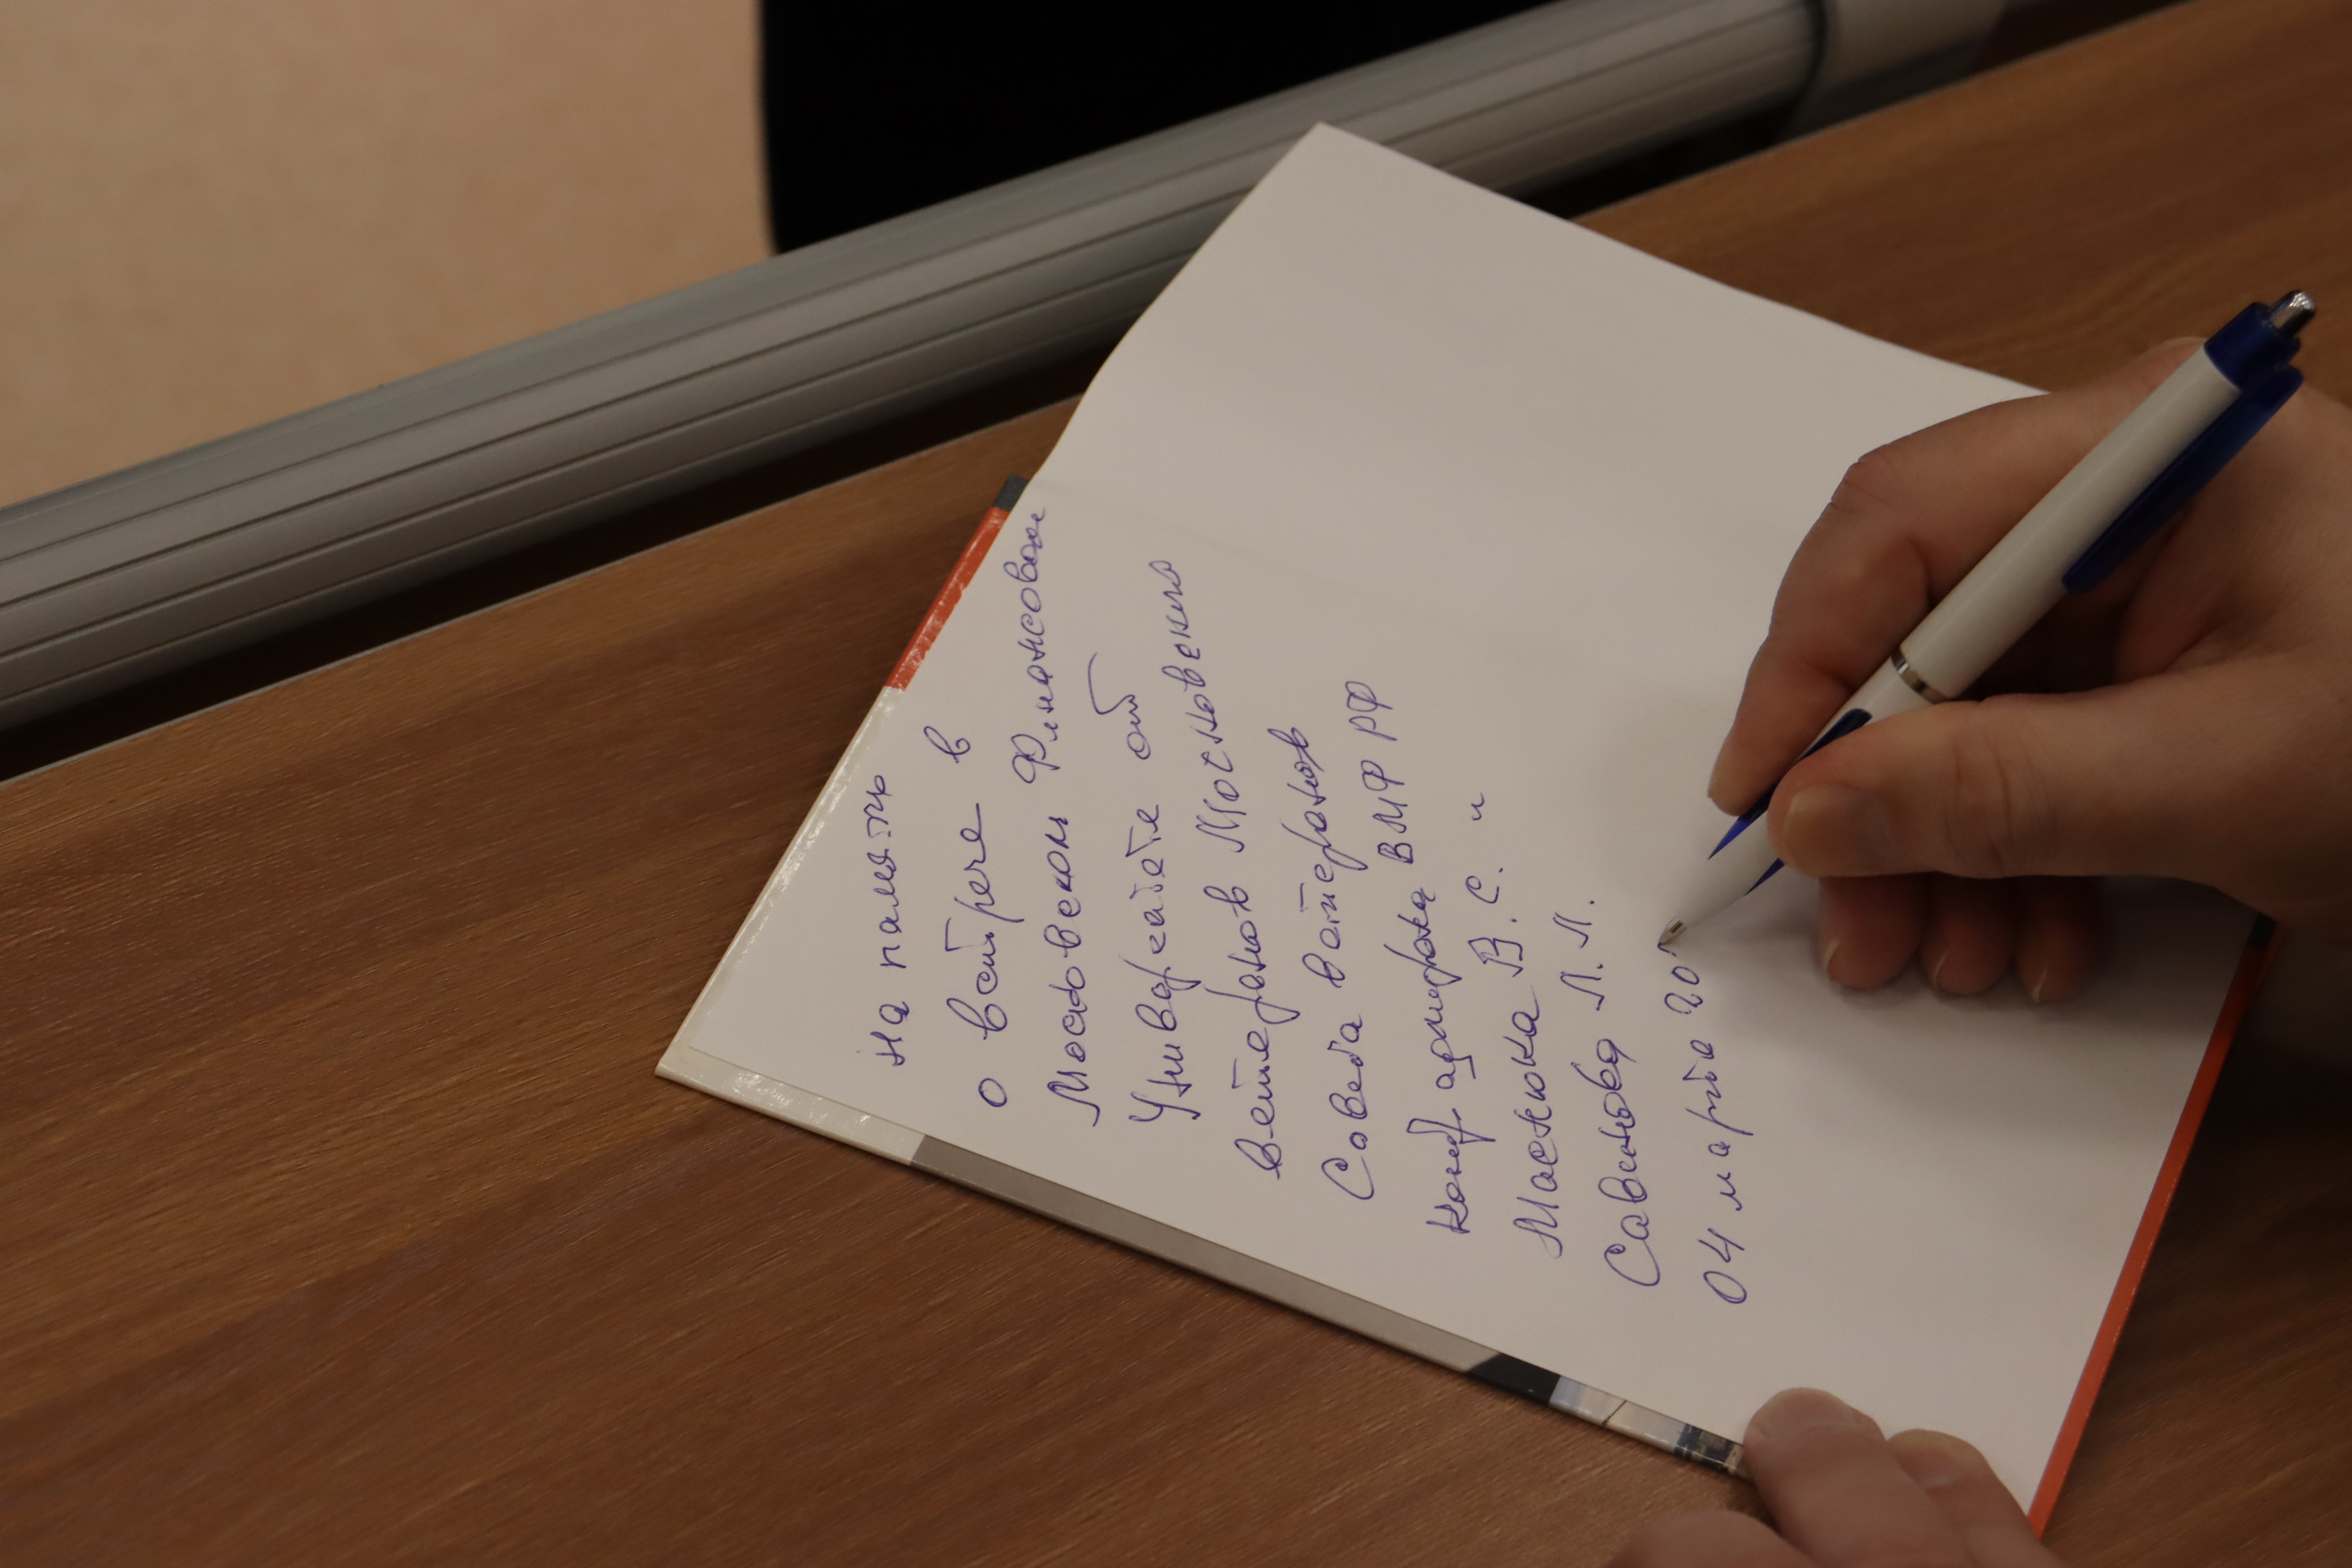 На память
о встрече в
Московском Финансовом
Университете от
ветеранов Московского
Совета ветеранов
контр адмирала ВМФ РФ
Масюка В. С. и
Л. Л.
04 марта 20